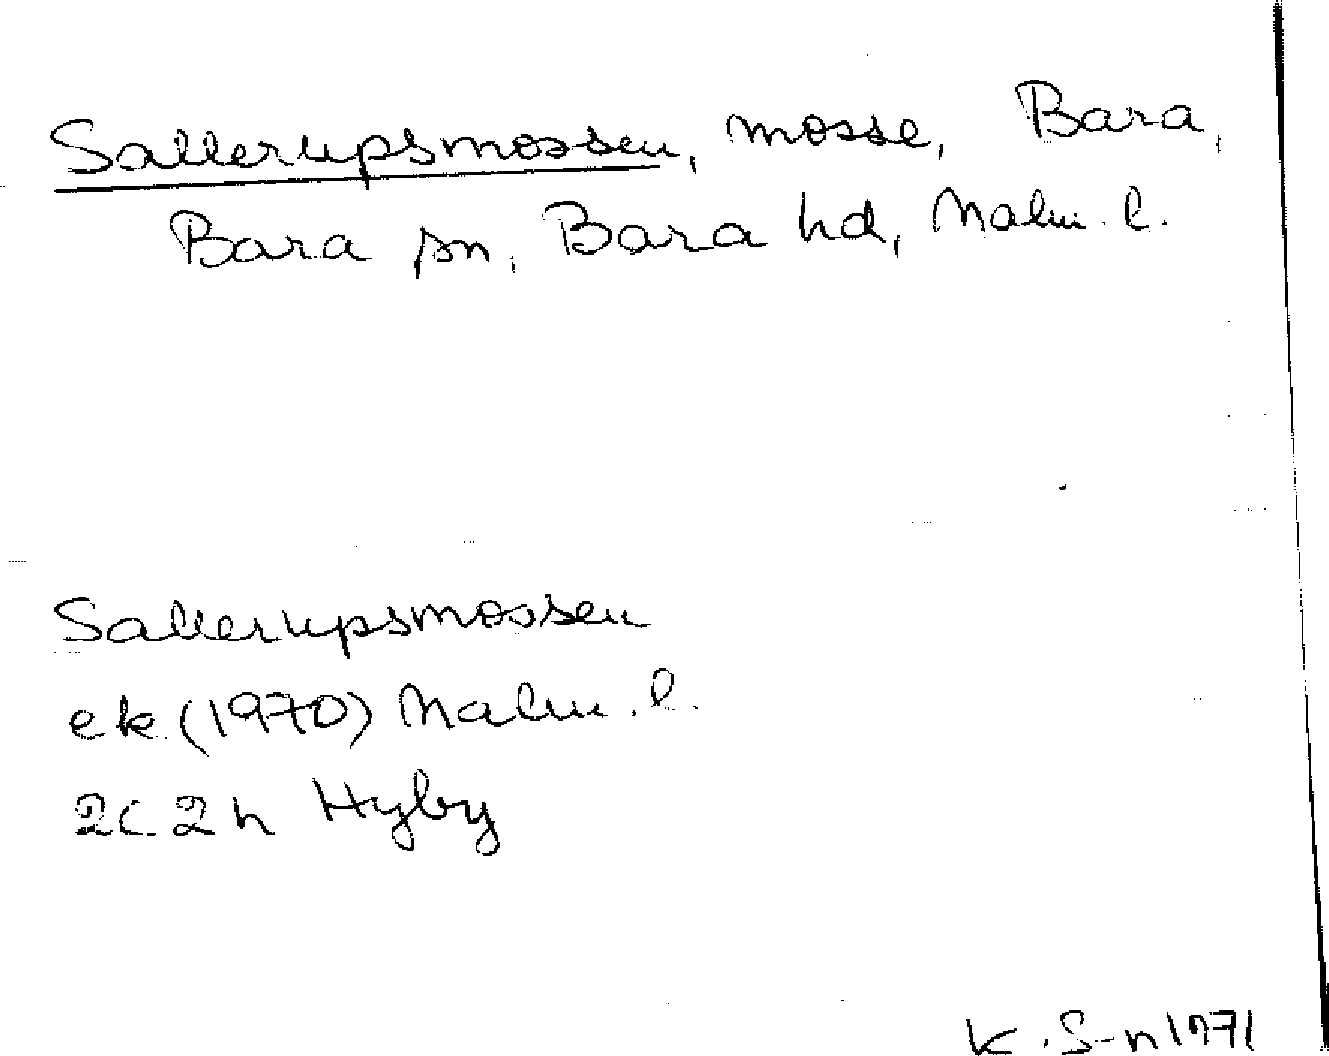 Sallerupsmossen, mosse, Bara,
Bara sn, Bara hd, Malm. l.
Sallerupsmossen
ek. (1970) Malm. l.
2C 2h Hyby
K. S-n 1971